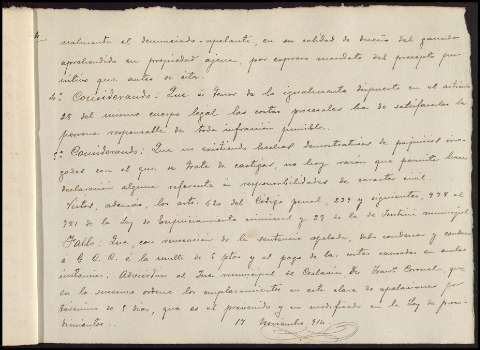 nalmente el denunciado-apelante, en su calidad de dueño del ganado
aprehendido en propiedad ajena, por expreso mandato del precepto pu-
nitivo que antes se cita.
4º Considerando: Que á tenor de lo igualmente dispuesto en el artículo
28 del mismo cuerpo legal las costas procesales ha de satisfacerlas la
persona responsable de toda infracción punible.
5º Considerando: Que no existiendo hechos demostrativos de perjuicios irro-
gados con el que se trata de castigar, no hay razón que permita hacer
declaración alguna referente á responsabilidades de caracter civil.
Vistos, además, los arts. 620 del Código penal, 239 y siguientes, 978 al
981 de la Ley de Enjuiciamiento criminal y 29 de la de Justicia municipal
Fallo: Que, con revocación de la sentencia apelada, debo condenar y condeno
á C. O. O. á la multa de 5 ptas y al pago de las costas causadas en ambas
instancias. Adviertan al Juez municipal de que,
en lo sucesivo ordene los emplazamientos en esta clase de apelaciones por
término de 5 dias, que es el prevenido y no modificado en la Ley de proce-
dimientos..
17 Noviembre 914